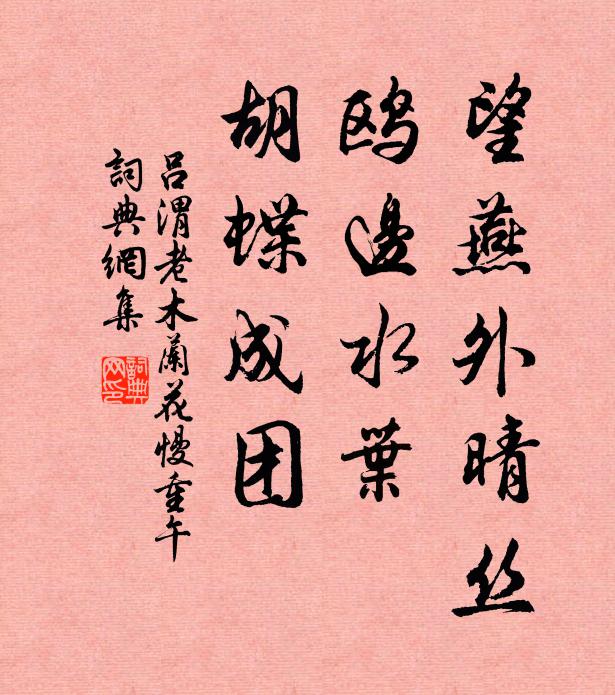 望燕外晴丝
鸥邊水葉
胡蝶成团
吕渭老木蘭花慢重午
詞典網集
詞典
网印